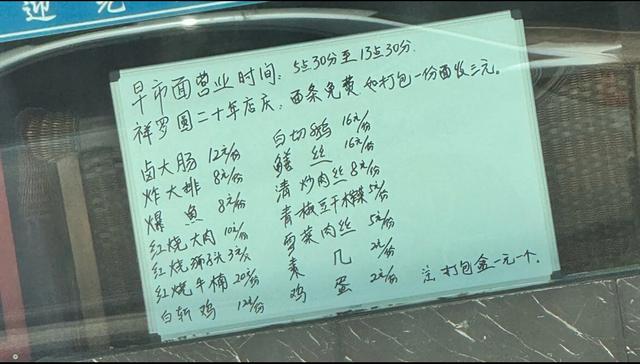 迎
早市面营业时间：5点30分至13点30分.
祥罗圆二十年店庆：面条免费 如打包一份面收三元。
卤大肠 12元/份 白切鹅 16元/份
炸大排 8元/份 鳝丝 16元/份
爆鱼 8元/份 清炒肉丝 8元/份
红烧大肉 10元/份 青椒豆干 5元/份
红烧狮子头 3元/ 雪菜肉丝 5元/份
红烧牛腩 20元/份 素几 2元/份
白斩鸡 12元/份 鸡蛋 2元/份 注 打包盒一元一个。